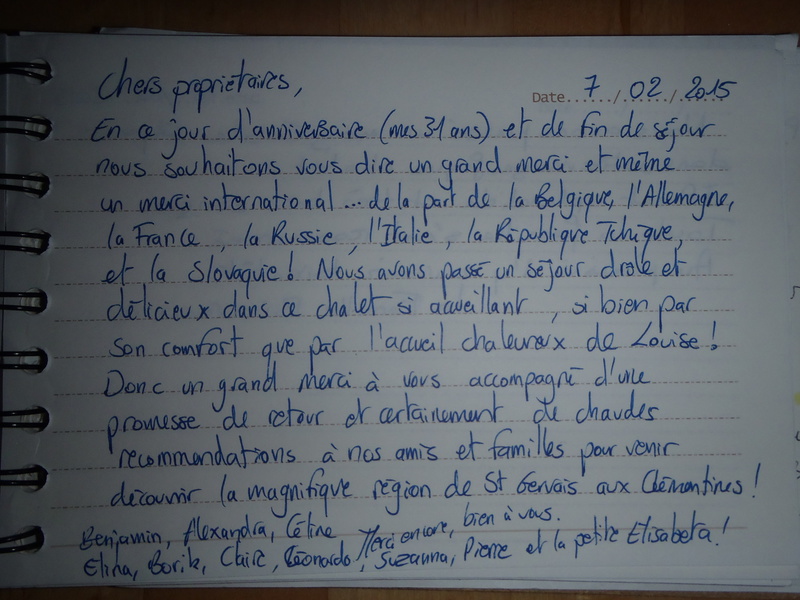 Chers propriétaires,
Date 7 / 02 / 2015
En ce jour d'anniversaire (mes 31 ans) et de fin de séjour
nous souhaitons vous dire un grand merci et même
un merci international... de la part de la Belgique, l'Allemagne,
la France, la Russie, l'Italie, la République Tchèque,
et la Slovaquie! Nous avons passé un séjour drole et
délicieux dans ce chalet si accueillant, si bien par
son comfort que par l'accueil chaleureux de Louise!
Donc un grand merci à vous accompagné d'une
promesse de retour et certainement de chaudes
recommendations à nos amis et familles pour venir
découvrir la magnifique région de St Gervais aux Clémentines!
Merci encore, bien à vous.
Benjamin, Alexandra, Céline
Elina, Borik, Claire, Léonardo, Suzanna, Pierre et la petite Elisabeta!